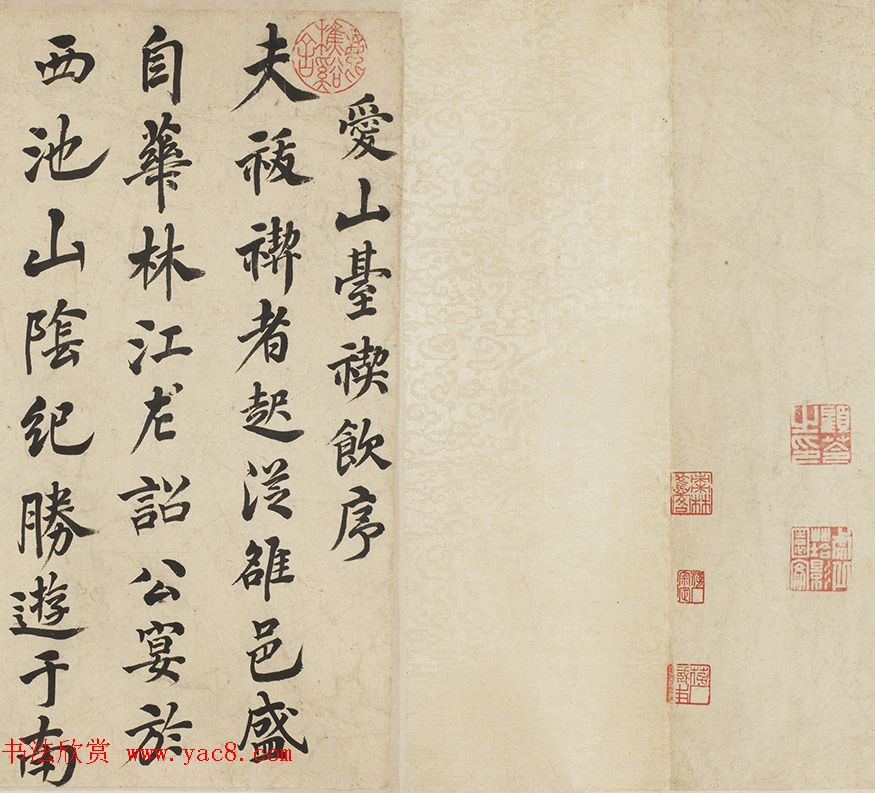 愛山臺禊飲序
夫祓禊者起從雒邑盛
自華林江左詔公宴於
西池山陰紀勝遊于南
顧苓之印
书法欣赏 www.yac8.com